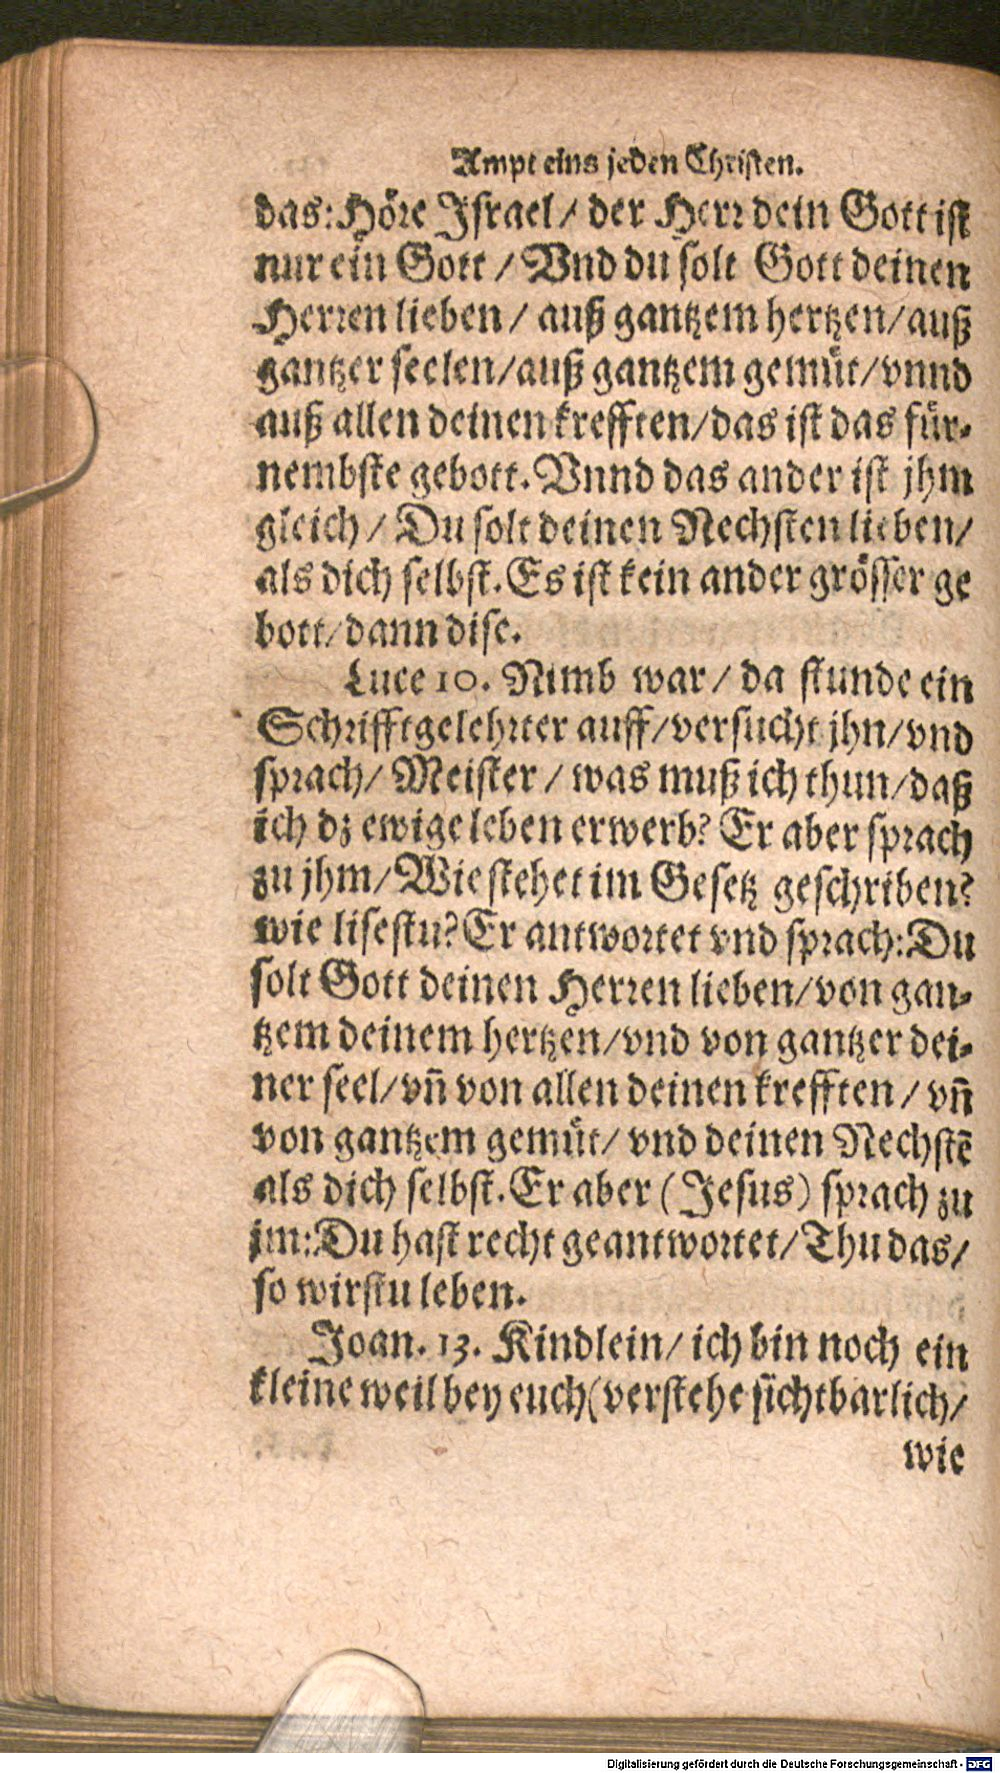 Ampt eins jeden Christen.
das: Höre Israel / der Herr dein Gott ist
nur ein Gott / Vnd du solt Gott deinen
Herren lieben / auß gantzem hertzen/auß
gantzer seelen/auß gantzem gemüt/vnnd
auß allen deinen krefften/das ist das für-
nembste gebott. Vnnd das ander ist jhm
gleich / Du solt deinen Nechsten lieben/
als dich selbst. Es ist kein ander grösser ge
bott/dann dise.
Luce 10. Nimb war / da stunde ein
Schrifftgelehrter auff/versucht jhn/vnd
sprach/ Meister / was muß ich thun/daß
ich dz ewige leben erwerb? Er aber sprach
zu jhm/Wie stehet im Gesetz geschriben?
wie lisestu? Er antwortet vnd sprach: Du
solt Gott deinen Herren lieben/von gan-
tzem deinem hertzen/vnd von gantzer dei-
ner seel/vñ von allen deinen krefften / vñ
von gantzem gemüt/ vnd deinen Nechstē
als dich selbst. Er aber (Jesus) sprach zu
jm: Du hast recht geantwortet/Thu das/
so wirstu leben.
Joan. 13. Kindlein/ ich bin noch ein
kleine weil bey euch(verstehe sichtbarlich/
wie
Digitalisierung gefördert durch die Deutsche Forschungsgemeinschaft - DFG